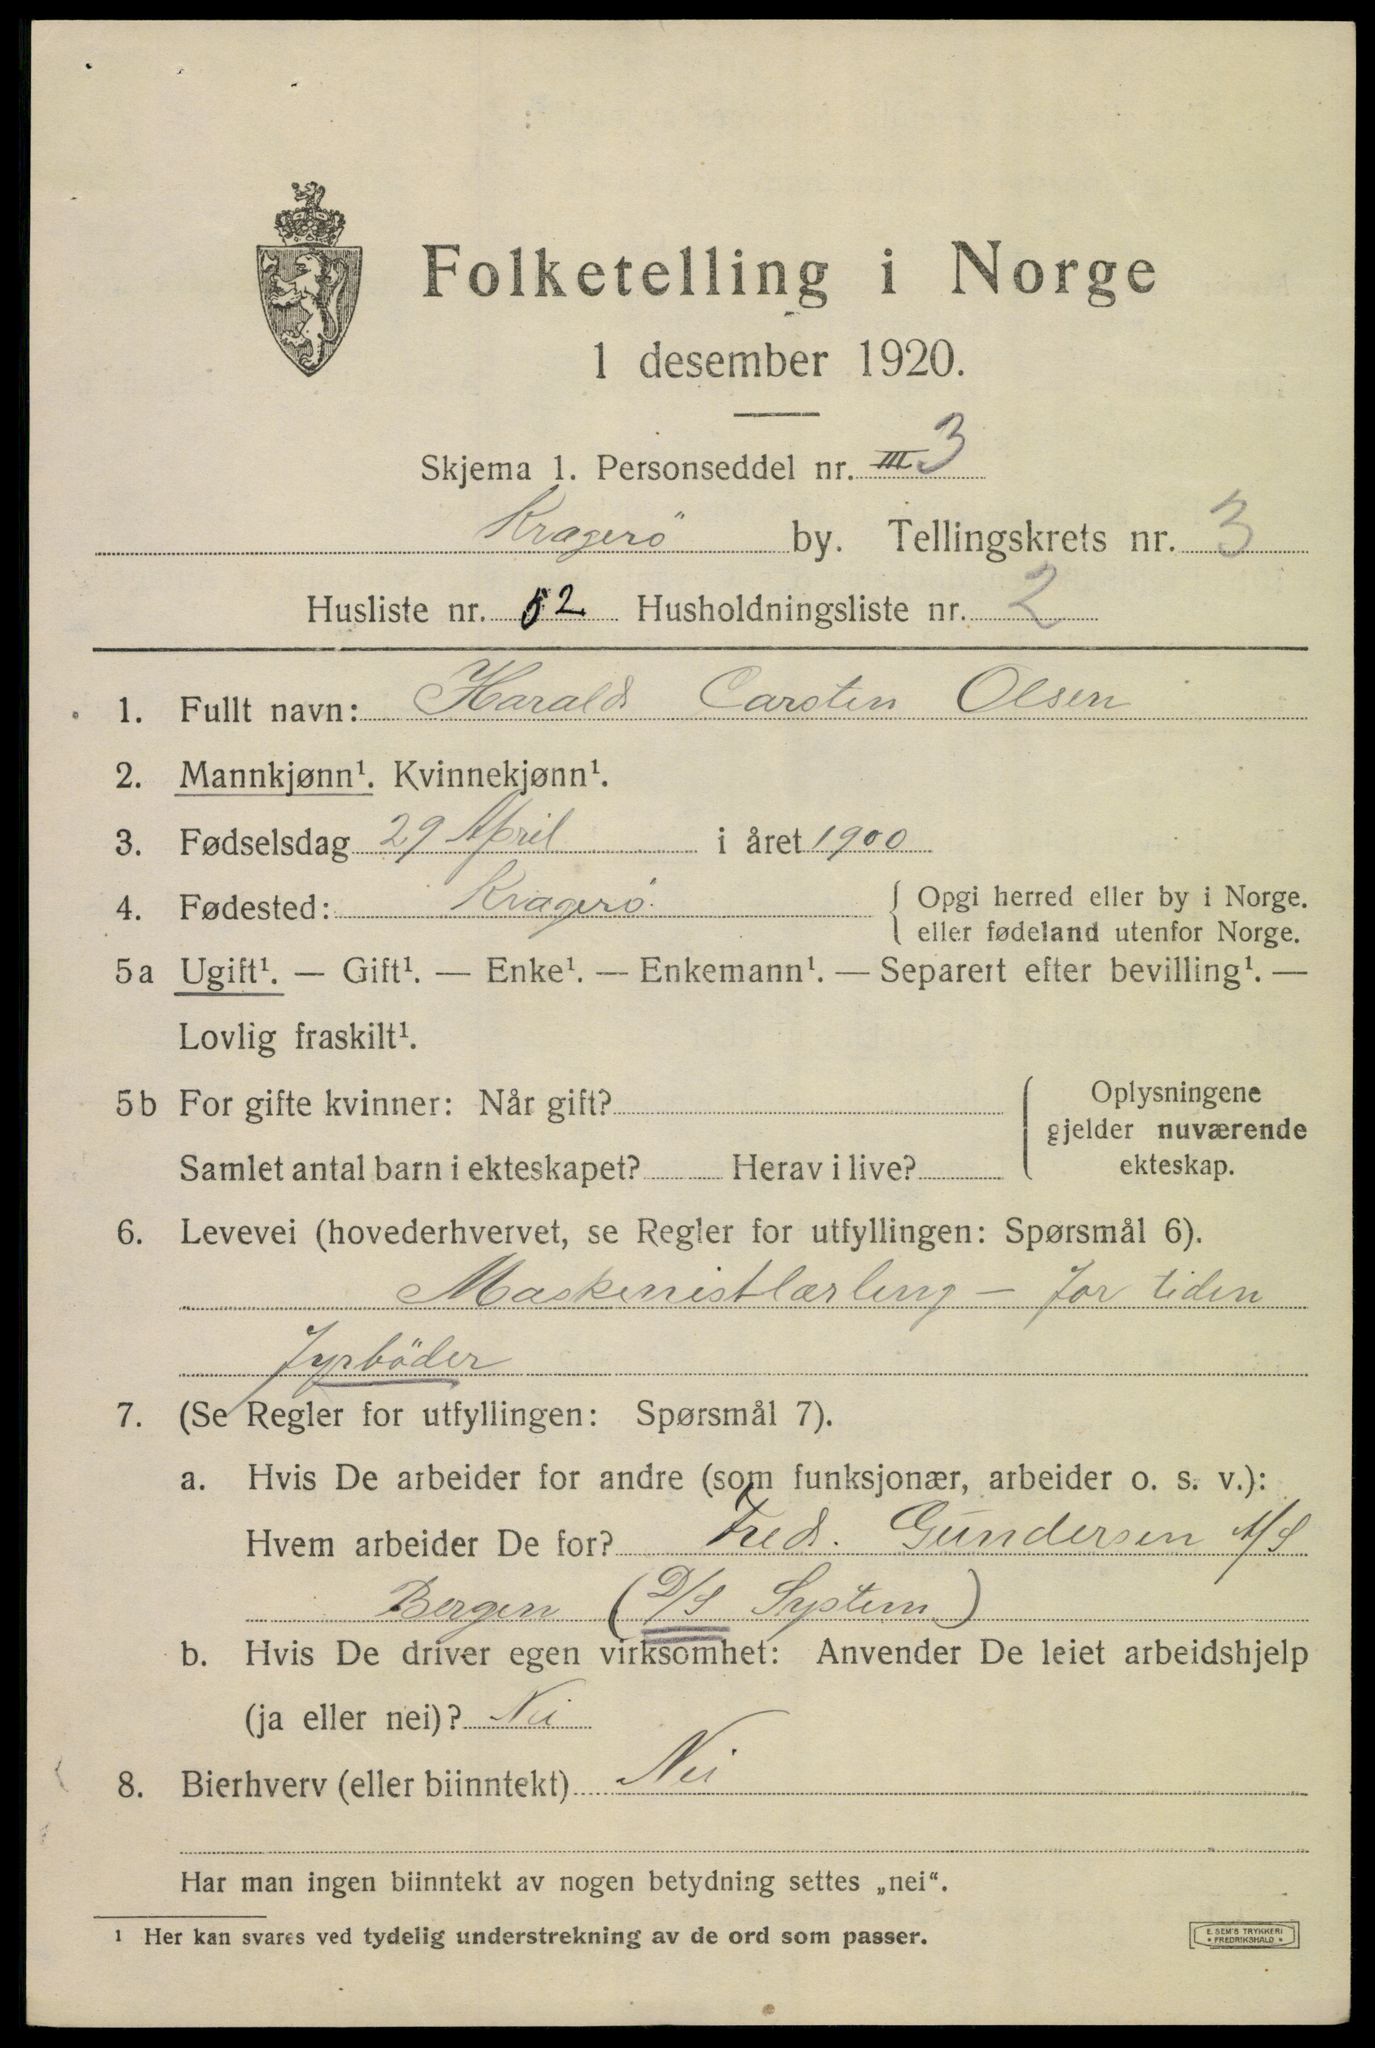 Folketelling i Norge
1 desember 1920.
Skjema 1. Personseddel nr. III 3
Kragerö by. Tellingskrets nr. 3
Husliste nr. 52 Husholdningsliste nr. 2
1. Fullt navn: Harald Carsten Olsen
2. Mannkjønn¹. Kvinnekjønn¹.
3. Fødselsdag 29 April i året 1900
4. Fødested: Kragerö { Opgi herred eller by i Norge.
eller fødeland utenfor Norge.
5a Ugift¹. — Gift¹. — Enke¹. — Enkemann¹. — Separert efter bevilling¹. —
Lovlig fraskilt¹.
5b For gifte kvinner: Når gift?
Samlet antal barn i ekteskapet? Herav i live?
Oplysningene
gjelder nuværende
ekteskap.
6. Levevei (hovederhvervet, se Regler for utfyllingen: Spørsmål 6).
Maskinistlærling – for tiden
Fyrböder
7. (Se Regler for utfyllingen: Spørsmål 7).
a. Hvis De arbeider for andre (som funksjonær, arbeider o. s. v.):
Hvem arbeider De for? Fred. Gundersen A/S
Bergen (D/S System)
b. Hvis De driver egen virksomhet: Anvender De leiet arbeidshjelp
(ja eller nei)? Nei
8. Bierhverv (eller biinntekt) Nei
Har man ingen biinntekt av nogen betydning settes „nei“.
¹ Her kan svares ved tydelig understrekning av de ord som passer.
E. SEM'S TRYKKERI
* FREDRIKSHALD *